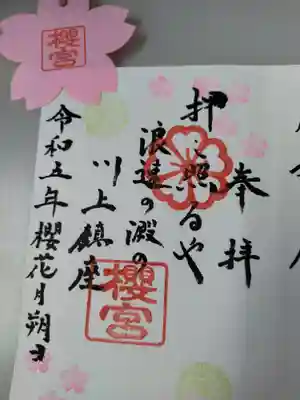 櫻宮
奉拝
押し照るや
浪速の澱の
川上鎮座
櫻宮
令和五年櫻花月朔日